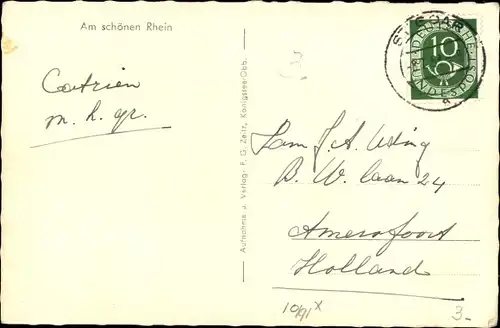 Am schönen Rhein
Catrien
m. h. gr.
3
ST. GOAR
DEUTSCHE BUNDESPOST
10
Fam J. A.
B. W. laan 24
Amersfoort
Holland
Aufnahme u. Verlag: F. G. Zeitz, Königssee-Obb.
10/91 x
3-